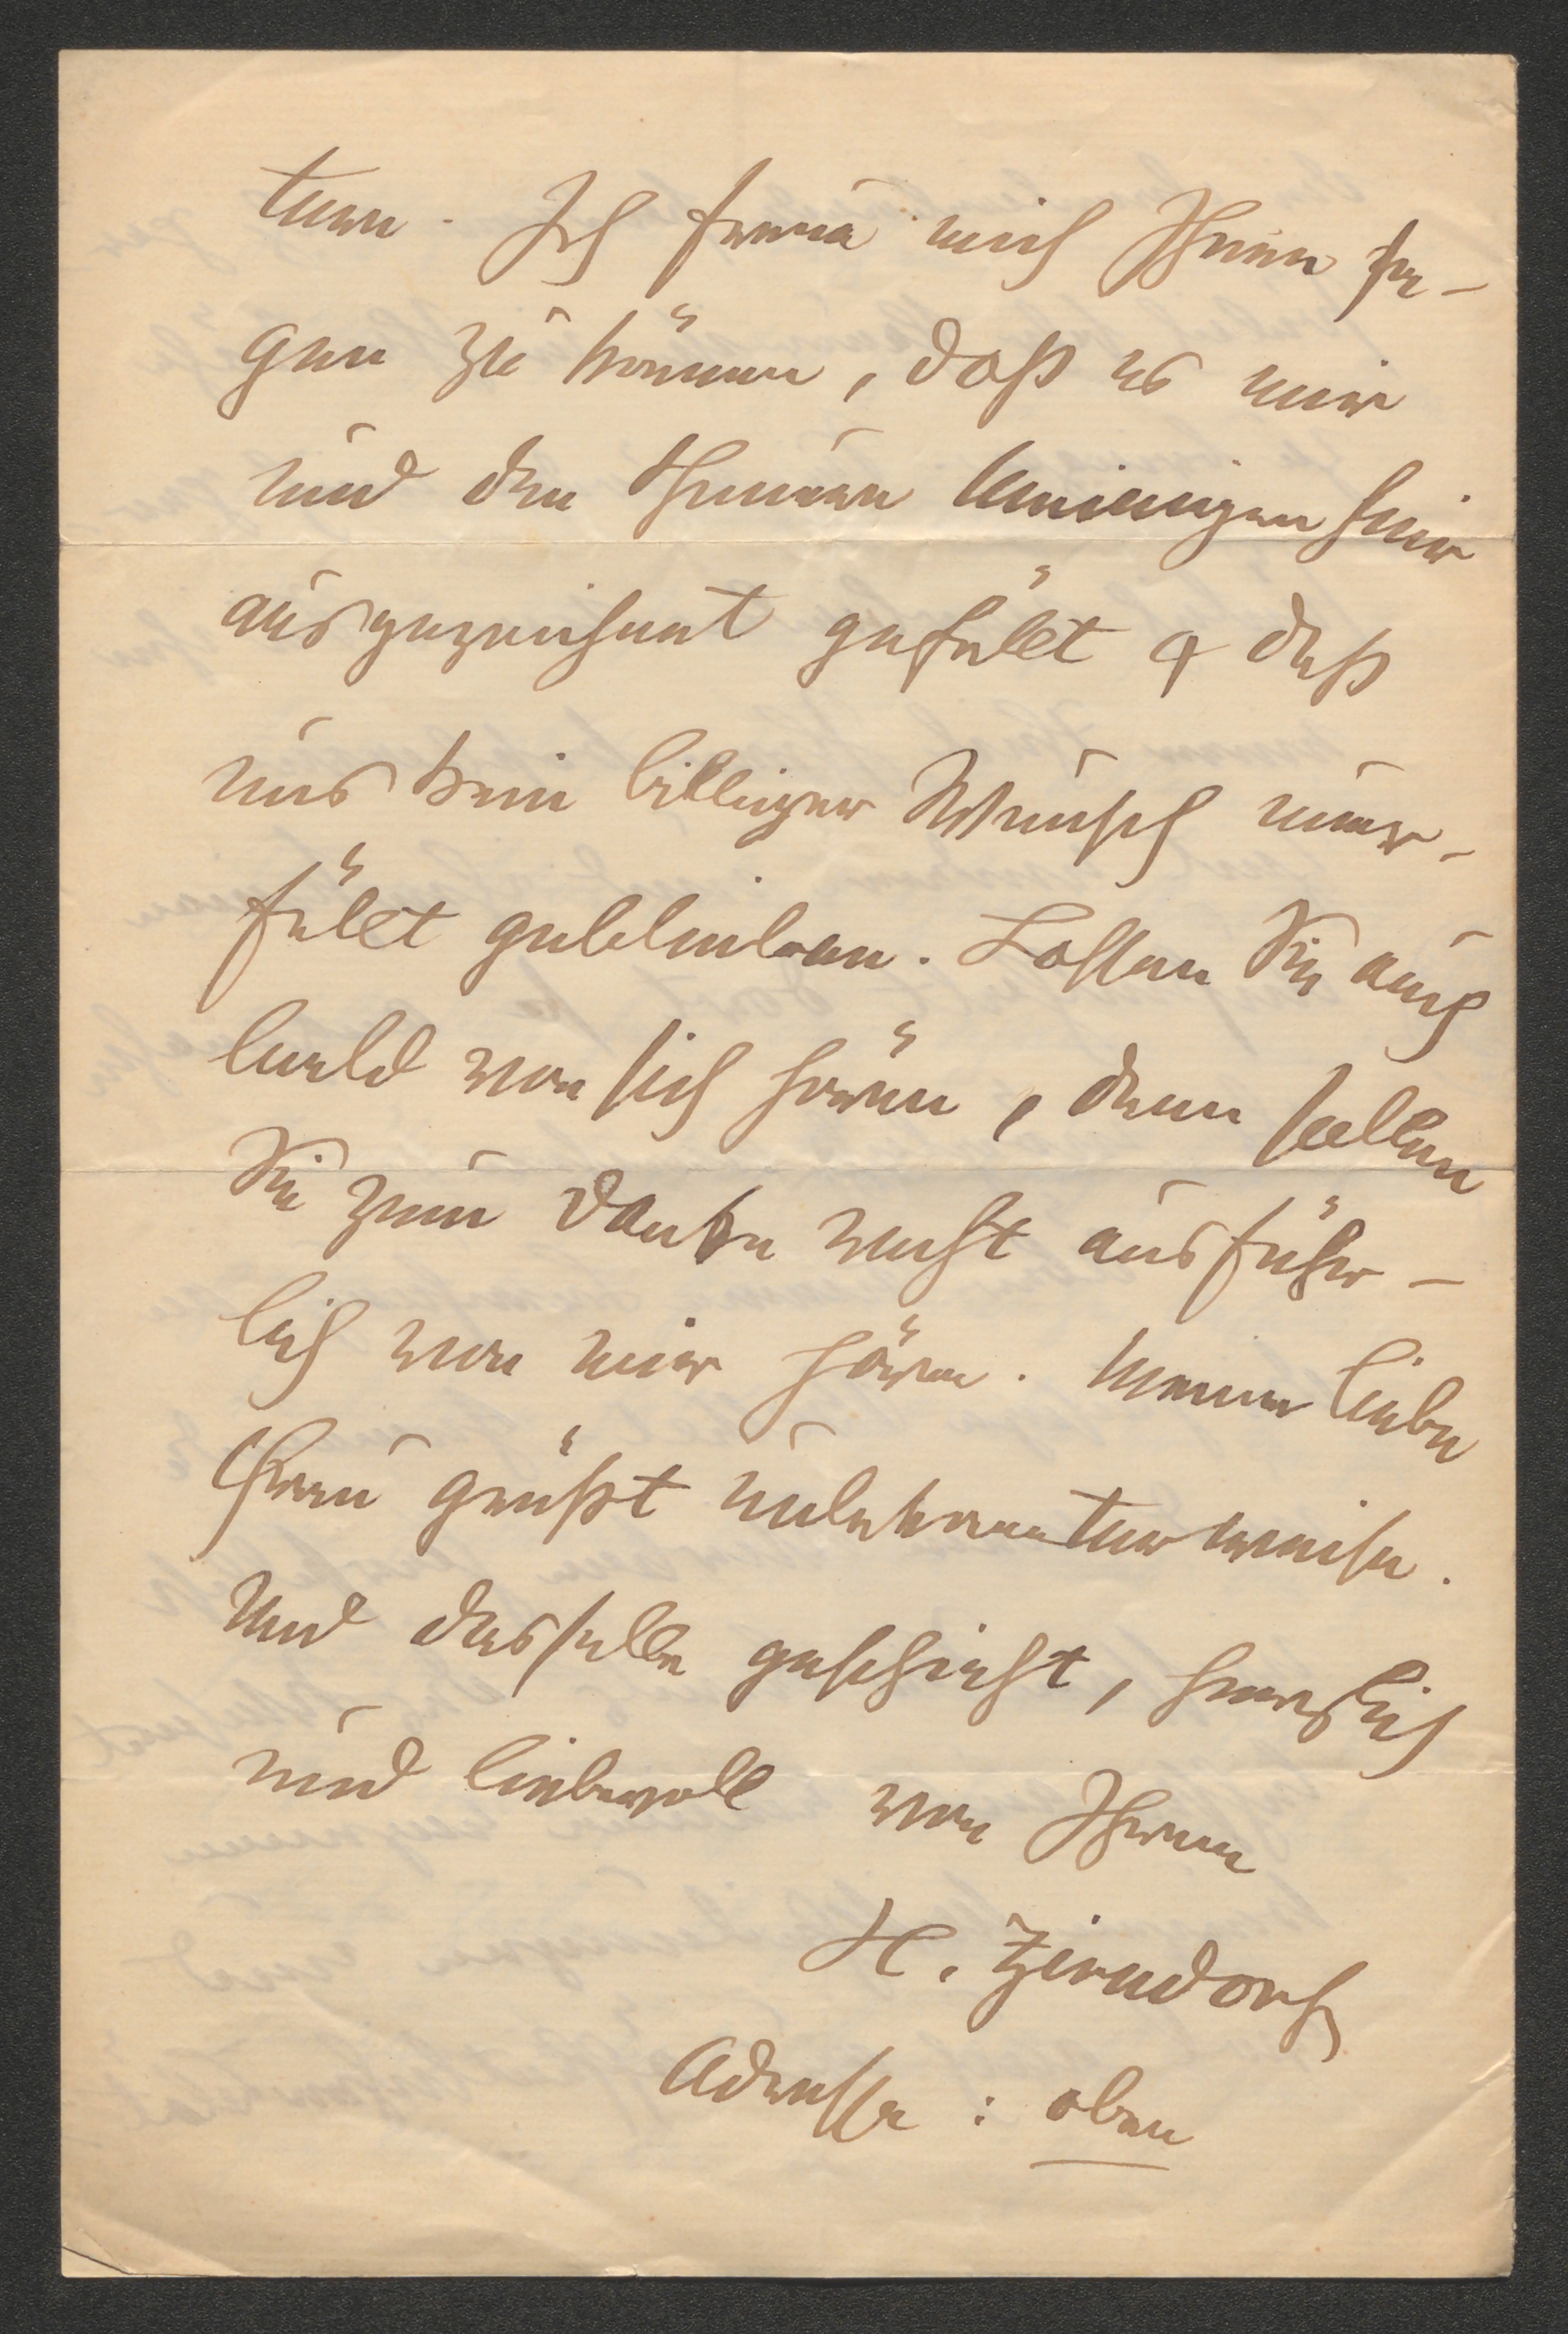 turn. Ich freue mich Ihnen sa-
gen zu können, daß es mir
und den theuren Meinigen hier
ausgezeichnet gefällt & daß
uns kein billiger Wunsch uner-
füllt geblieben. Lassen Sie auch
bald von sich hören, dann sollen
Sie zum Danke recht ausführ-
lich von mir hören. Meine liebe
Frau grüßt unbekannter weise.
Und dasselbe geschieht, herzlich
und liebevoll von Ihrem
H. Zirndorf
Adresse: oben